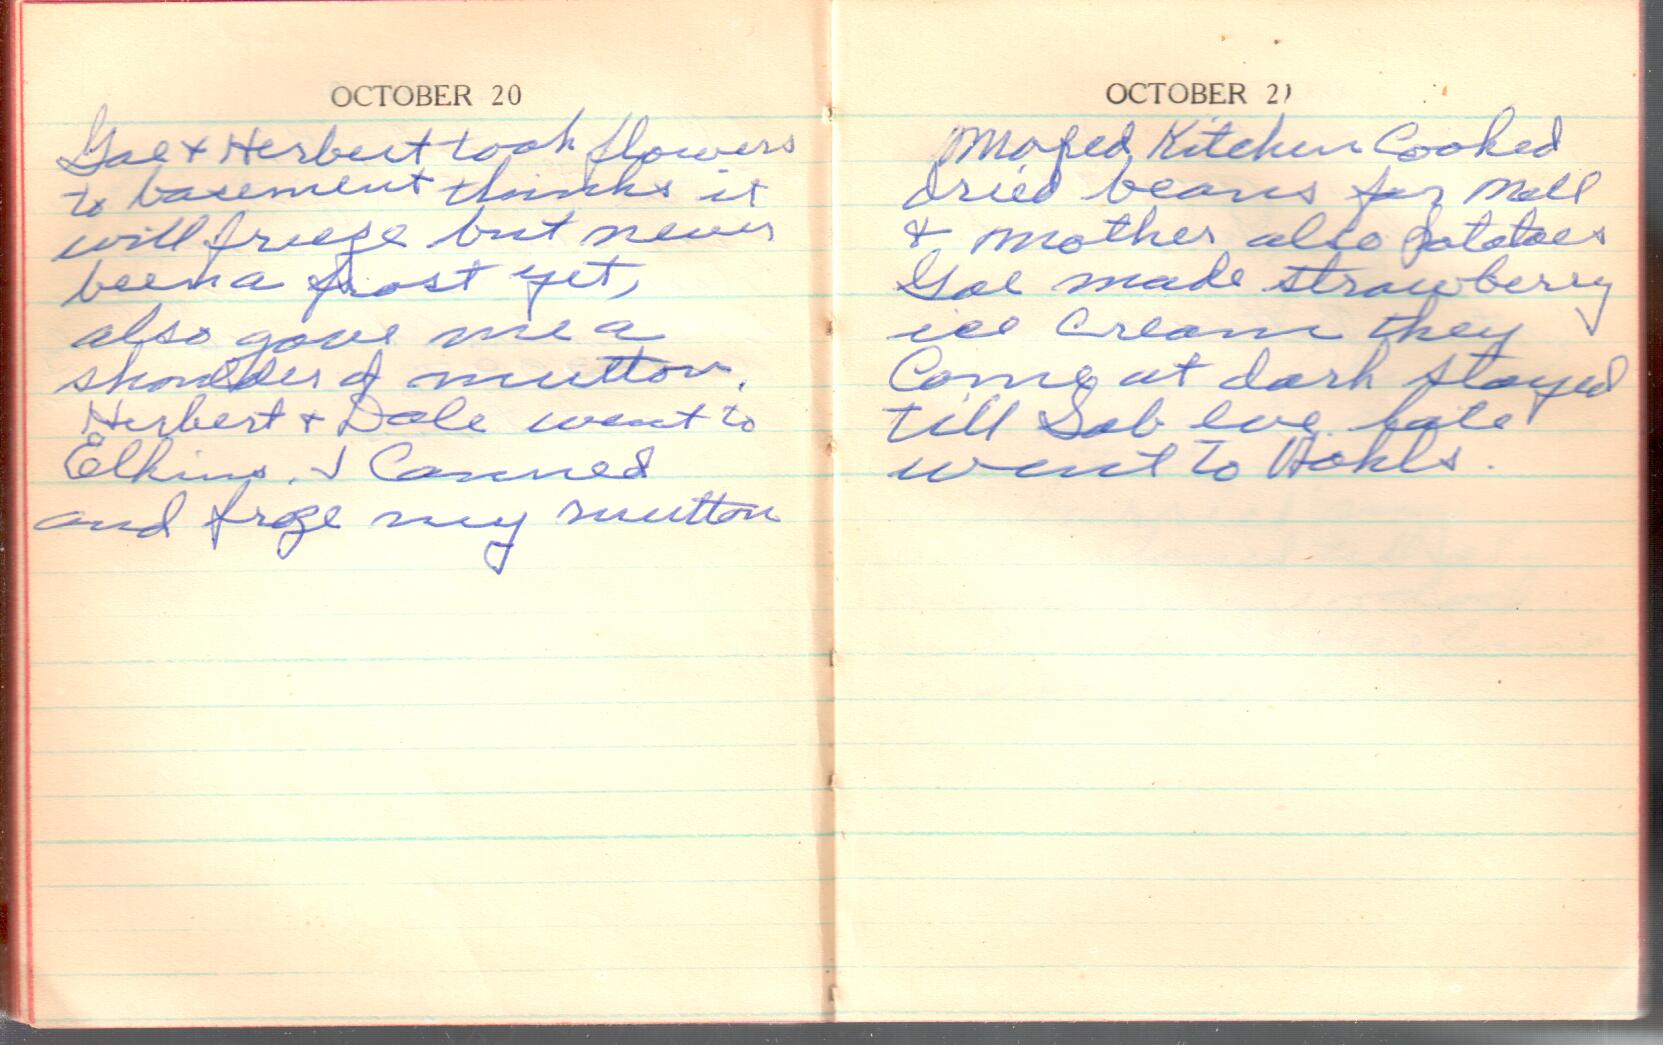 OCTOBER 20
Gae & Herbert took flowers
to basement thinks it
will freeze but never
been a frost yet,
also gave me a
shoulder of mutton.
Herbert & Dale went to
Elkins. I Canned
and froze my mutton
OCTOBER 21
Moped Kitchen Cooked
dried beans for Mell
& Mother also potatoes
Gae made strawberry
ice cream they
Come at dark stayed
till Sab eve. late
went to Hohls.